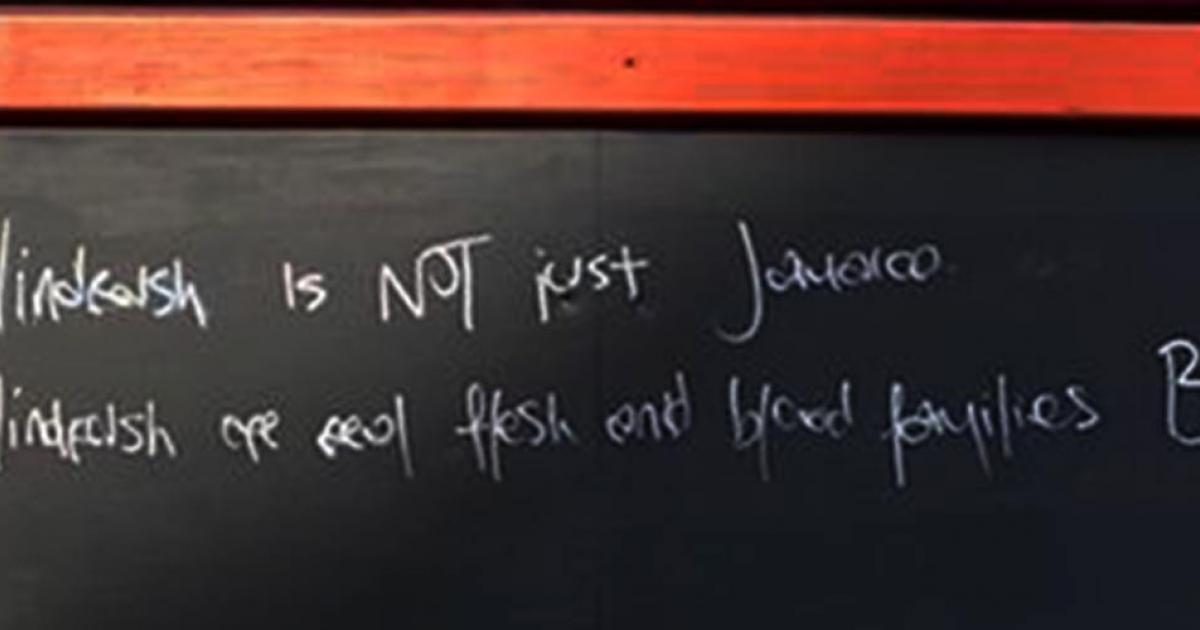 Windrush is NOT just Jamaica
Windrush are real flesh and blood families B